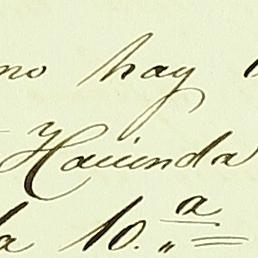 no hay
Hacienda
la 10.ª